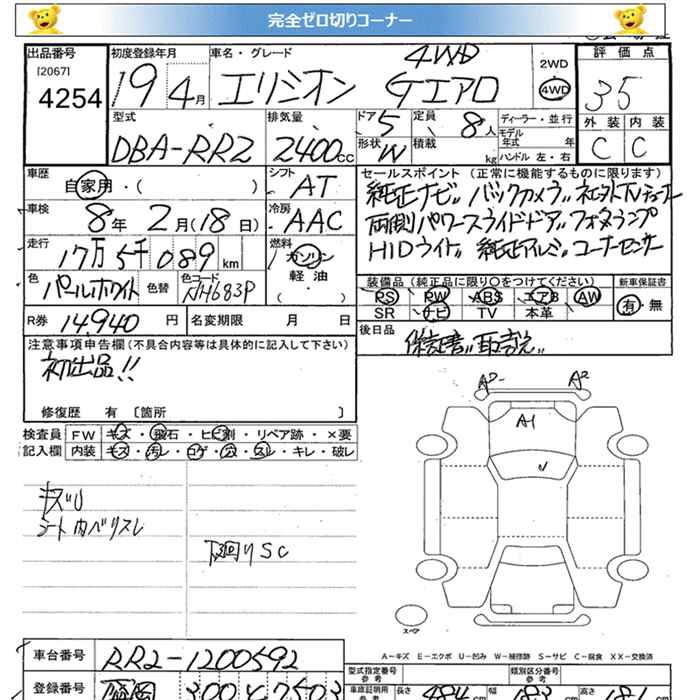 完全ゼロ切りコーナー
出品番号 [2067] 4254
初度登録年月 19年 4月
車名・グレード エリシオン Gエアロ 4WD
2WD 4WD
評価点 35
型式 DBA-RR2
排気量 2400cc
ドア 5 定員 8人
形状 W 積載 kg
ディーラー・並行
モデル年式 年
ハンドル 左・右
外装 内装
C C
車歴 自家用・( )
シフト AT
車検 8年 2月(18日)
冷房 AAC
走行 17万5千089km
燃料 ガソリン 軽油 ( )
色 パールホワイト 色替 色コード NH683P
R券 14,940円 名変期限 月 日
セールスポイント(正常に機能するものに限ります)
純正ナビ〃 バックカメラ〃
両側パワースライドドア〃 フォグランプ
HIDライト〃 純正アルミ〃 コーナーセンサー
装備品(純正品に限り〇をつけてください) 新車保証書
PS PW ABS エアB AW 有・無
SR ナビ TV 本革
後日品 保証書〃 取説〃
注意事項申告欄(不具合内容等は具体的に記入して下さい)
初出品!!
修復歴 有 〔箇所 〕
検査員記入欄 FW キズ・飛石・ヒビ割・リペア跡・×要
内装 キズ・汚レ・コゲ・穴・スレ・キレ・破レ
キズU
シート内ベリスレ
下回りSC
A2 A2
A1
スペア
A-キズ E-エクボ U-凹み W-補修跡 S-サビ C-腐食 XX-交換済
車台番号 RR2-1200592
登録番号 盛岡 300
型式指定番号 参考 類別区分番号 参考
車庫証明用 参考 長さ 484 幅 183 高さ